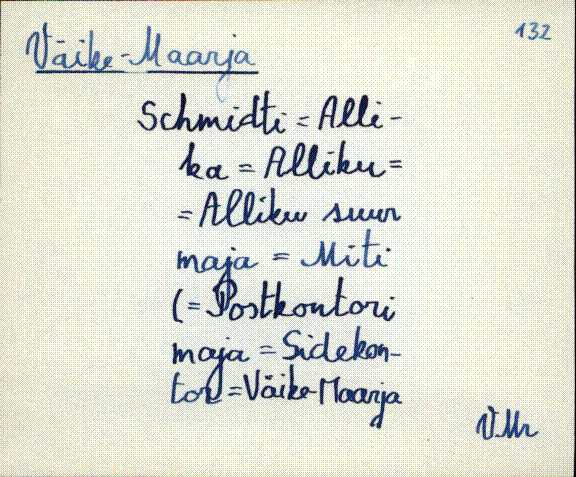 132
Väike-Maarja
Schmidti = Alli-
ka = Alliku =
= Alliku suur
maja = Miti
(= Postkontori
maja = Sidekon-
tor = Väike-Maarja
VMr